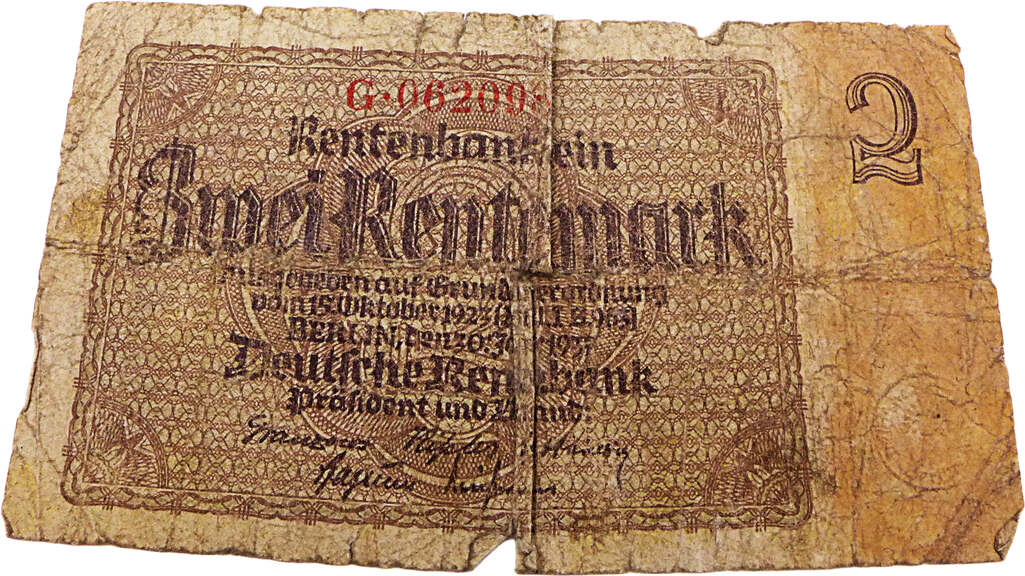 G·06209·
2
Rentenbankschein
Zwei Rentenmark
Ausgegeben auf Grund der Verordnung
vom 15. Oktober 1923 (R.G.Bl. I S. 963)
BERLIN, den 30. 1937
Deutsche Rentenbank
Präsident und